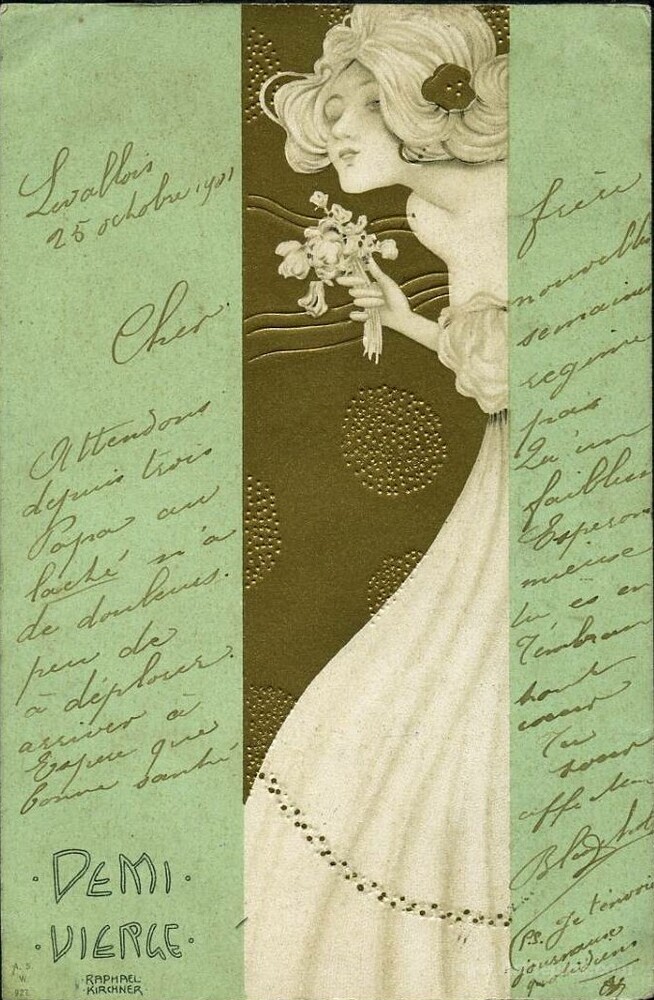 Levallois
25 octobre 1901
Cher
Attendons
depuis trois
Papa au
laché n'a
de douleurs.
peu de
à déplorer.
arriver à
Espère que
bonne santé
frère
nouvelle
semaine
regime
pas
Qu'un
faible
Esperons
mieux
tu es en
T'embrass
tout
coeur
Ta
soeur
affect
P.S. Je t'envoie
journaux
quotidiens
DEMI
VIERGE
RAPHAEL
KIRCHNER